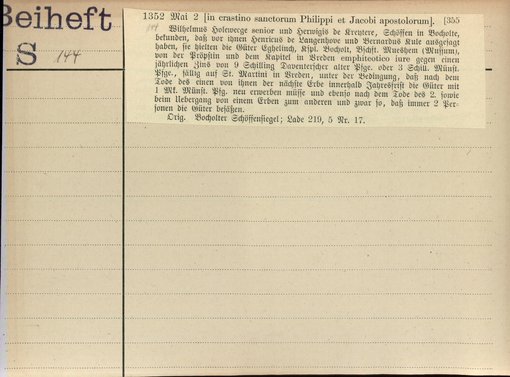 Beiheft
S 144
1352 Mai 2 [in crastino sanctorum Philippi et Jacobi apostolorum]. [355
144
Wilhelmus Holewerge senior und Herwigis de Kreytere, Schöffen in Bocholte,
bekunden, daß vor ihnen Henricus de Langenhove und Bernardus Kule ausgesagt
haben, sie hielten die Güter Eghelinch, Kspl. Bocholt, Bschft. Mueshem (Mussum),
von der Pröpstin und dem Kapitel in Vreden emphiteotico iure gegen einen
jährlichen Zins von 9 Schilling Daventerscher alter Pfge. oder 3 Schill. Münst.
Pfge., fällig auf St. Martini in Vreden, unter der Bedingung, daß nach dem
Tode des einen von ihnen der nächste Erbe innerhalb Jahresfrist die Güter mit
1 Mk. Münst. Pfg. neu erwerben müsse und ebenso nach dem Tode des 2. sowie
beim Uebergang von einem Erben zum anderen und zwar so, daß immer 2 Per-
sonen die Güter besäßen.
Orig. Bocholter Schöffensiegel; Lade 219, 5 Nr. 17.